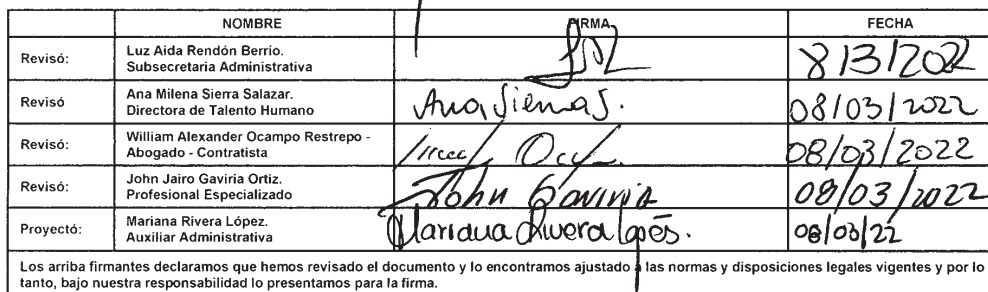 NOMBRE FIRMA FECHA
Revisó: Luz Aida Rendón Berrío.
Subsecretaria Administrativa
8/3/2022
Revisó Ana Milena Sierra Salazar.
Directora de Talento Humano
Ana Sierra S. 08/03/2022
Revisó: William Alexander Ocampo Restrepo -
Abogado - Contratista
08/03/2022
Revisó: John Jairo Gaviria Ortiz.
Profesional Especializado
John Gaviria 08/03/2022
Proyectó: Mariana Rivera López.
Auxiliar Administrativa
Mariana Rivera López. 08/03/22
Los arriba firmantes declaramos que hemos revisado el documento y lo encontramos ajustado a las normas y disposiciones legales vigentes y por lo
tanto, bajo nuestra responsabilidad lo presentamos para la firma.